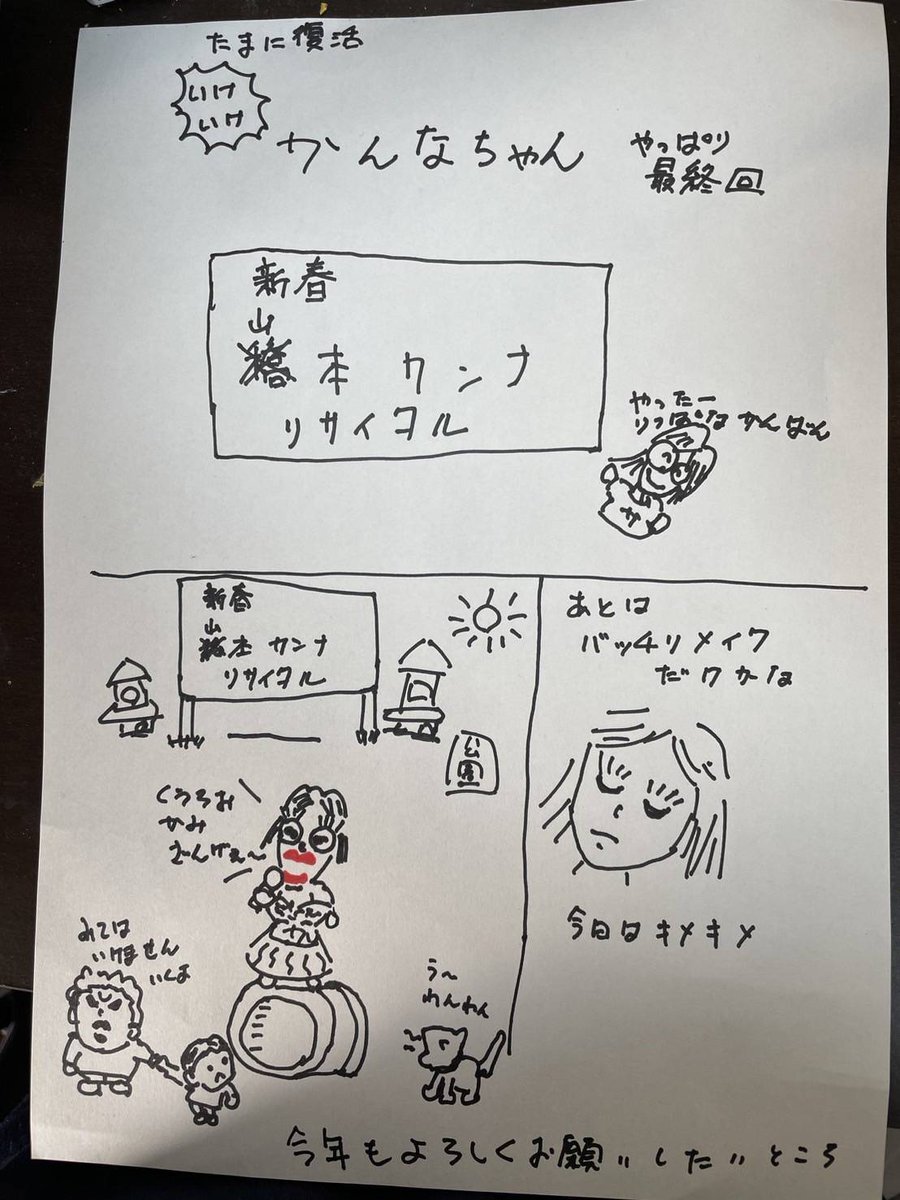 たまに復活
いけ
いけ
かんなちゃん
やっぱり
最終回
新春
山
橋本 カンナ
リサイタル
やったー
りっぱな かんばん
か
あとは
バッチリメイク
だけかな
今日はキメキメ
新春
山
橋本 カンナ
リサイタル
公園
くろろお
かみ
ざんげぇ〜
みては
いけません
いくよ
う〜
わんわん
今年もよろしくお願いしたいところ